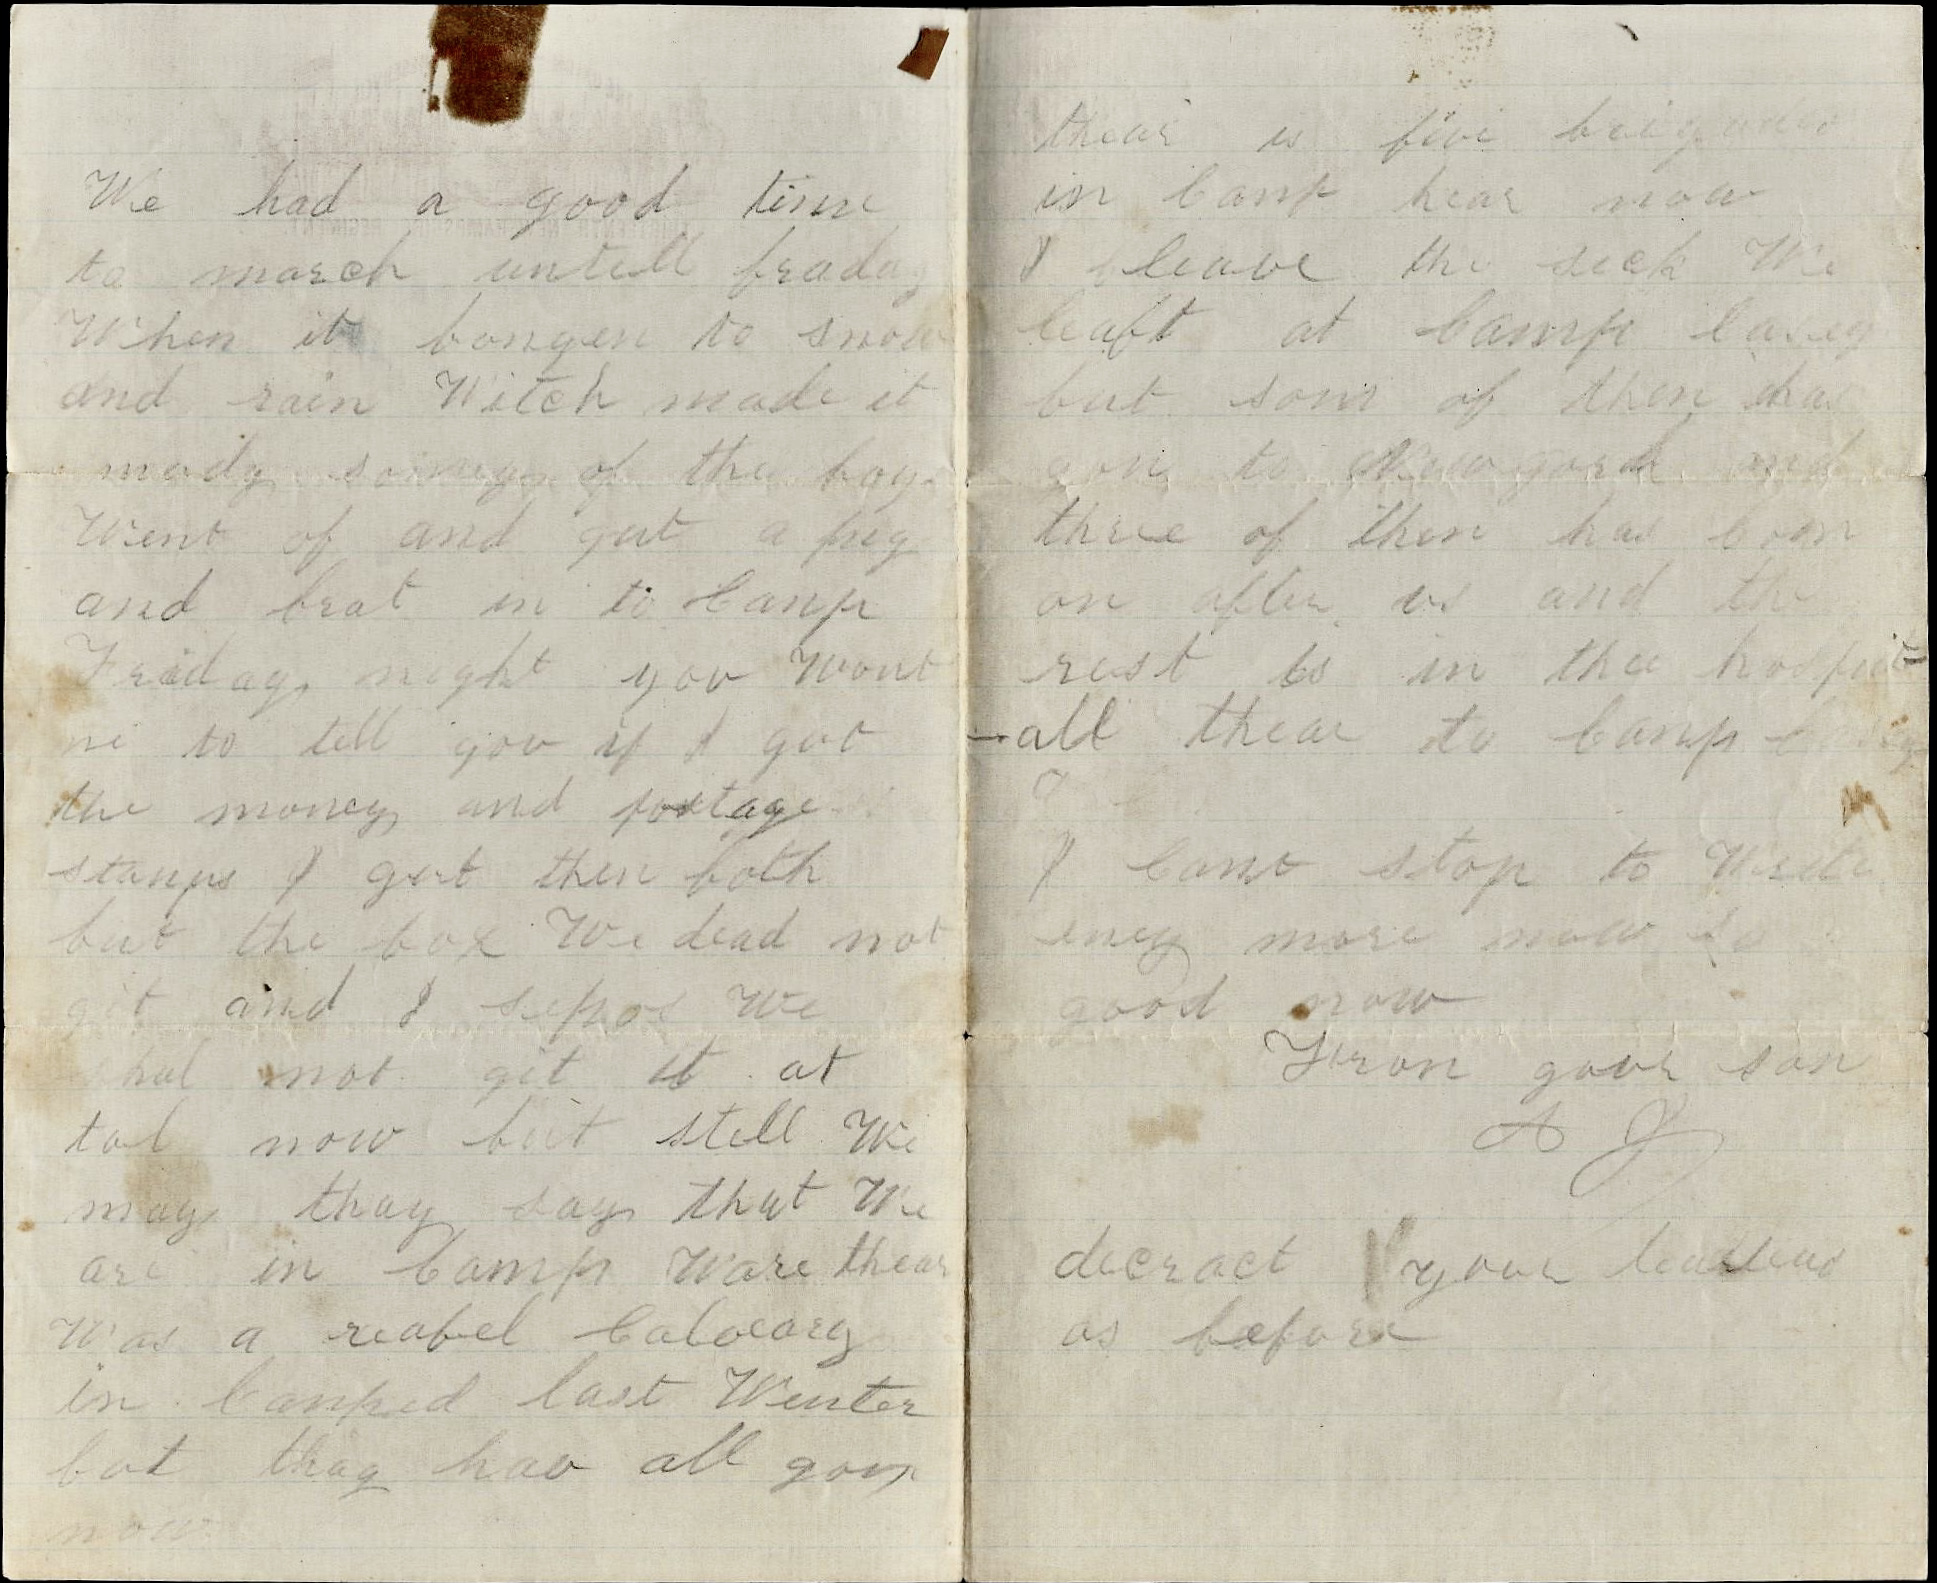 We had a good time
to march untell fraday
When it bongen to snow
and rain Witch made it
mudy somey of the boys
Went of and gut a pig
and brat in to Camp
Friday night you Wont
me to tell you if I got
the money and postage
stamps I gut then both
but the box We dead not
git and I sepos We
shal not git it at
tal now but still We
may thay say that We
are in Camp Ware thear
Was a reabel Calvary
in Camped last Wenter
bot thay hav all gon
now
thear is five brigades
in Camp hear now
I leave the seck We
leaft at Camp Casey
but som of them has
gon to and
three of them has Com
on after us and the
rest is in thee hospit-
-all thear to Camp Casey
I Cant stop to Write
eney more now so
good now
From your son
A J
decract your leatters
as before